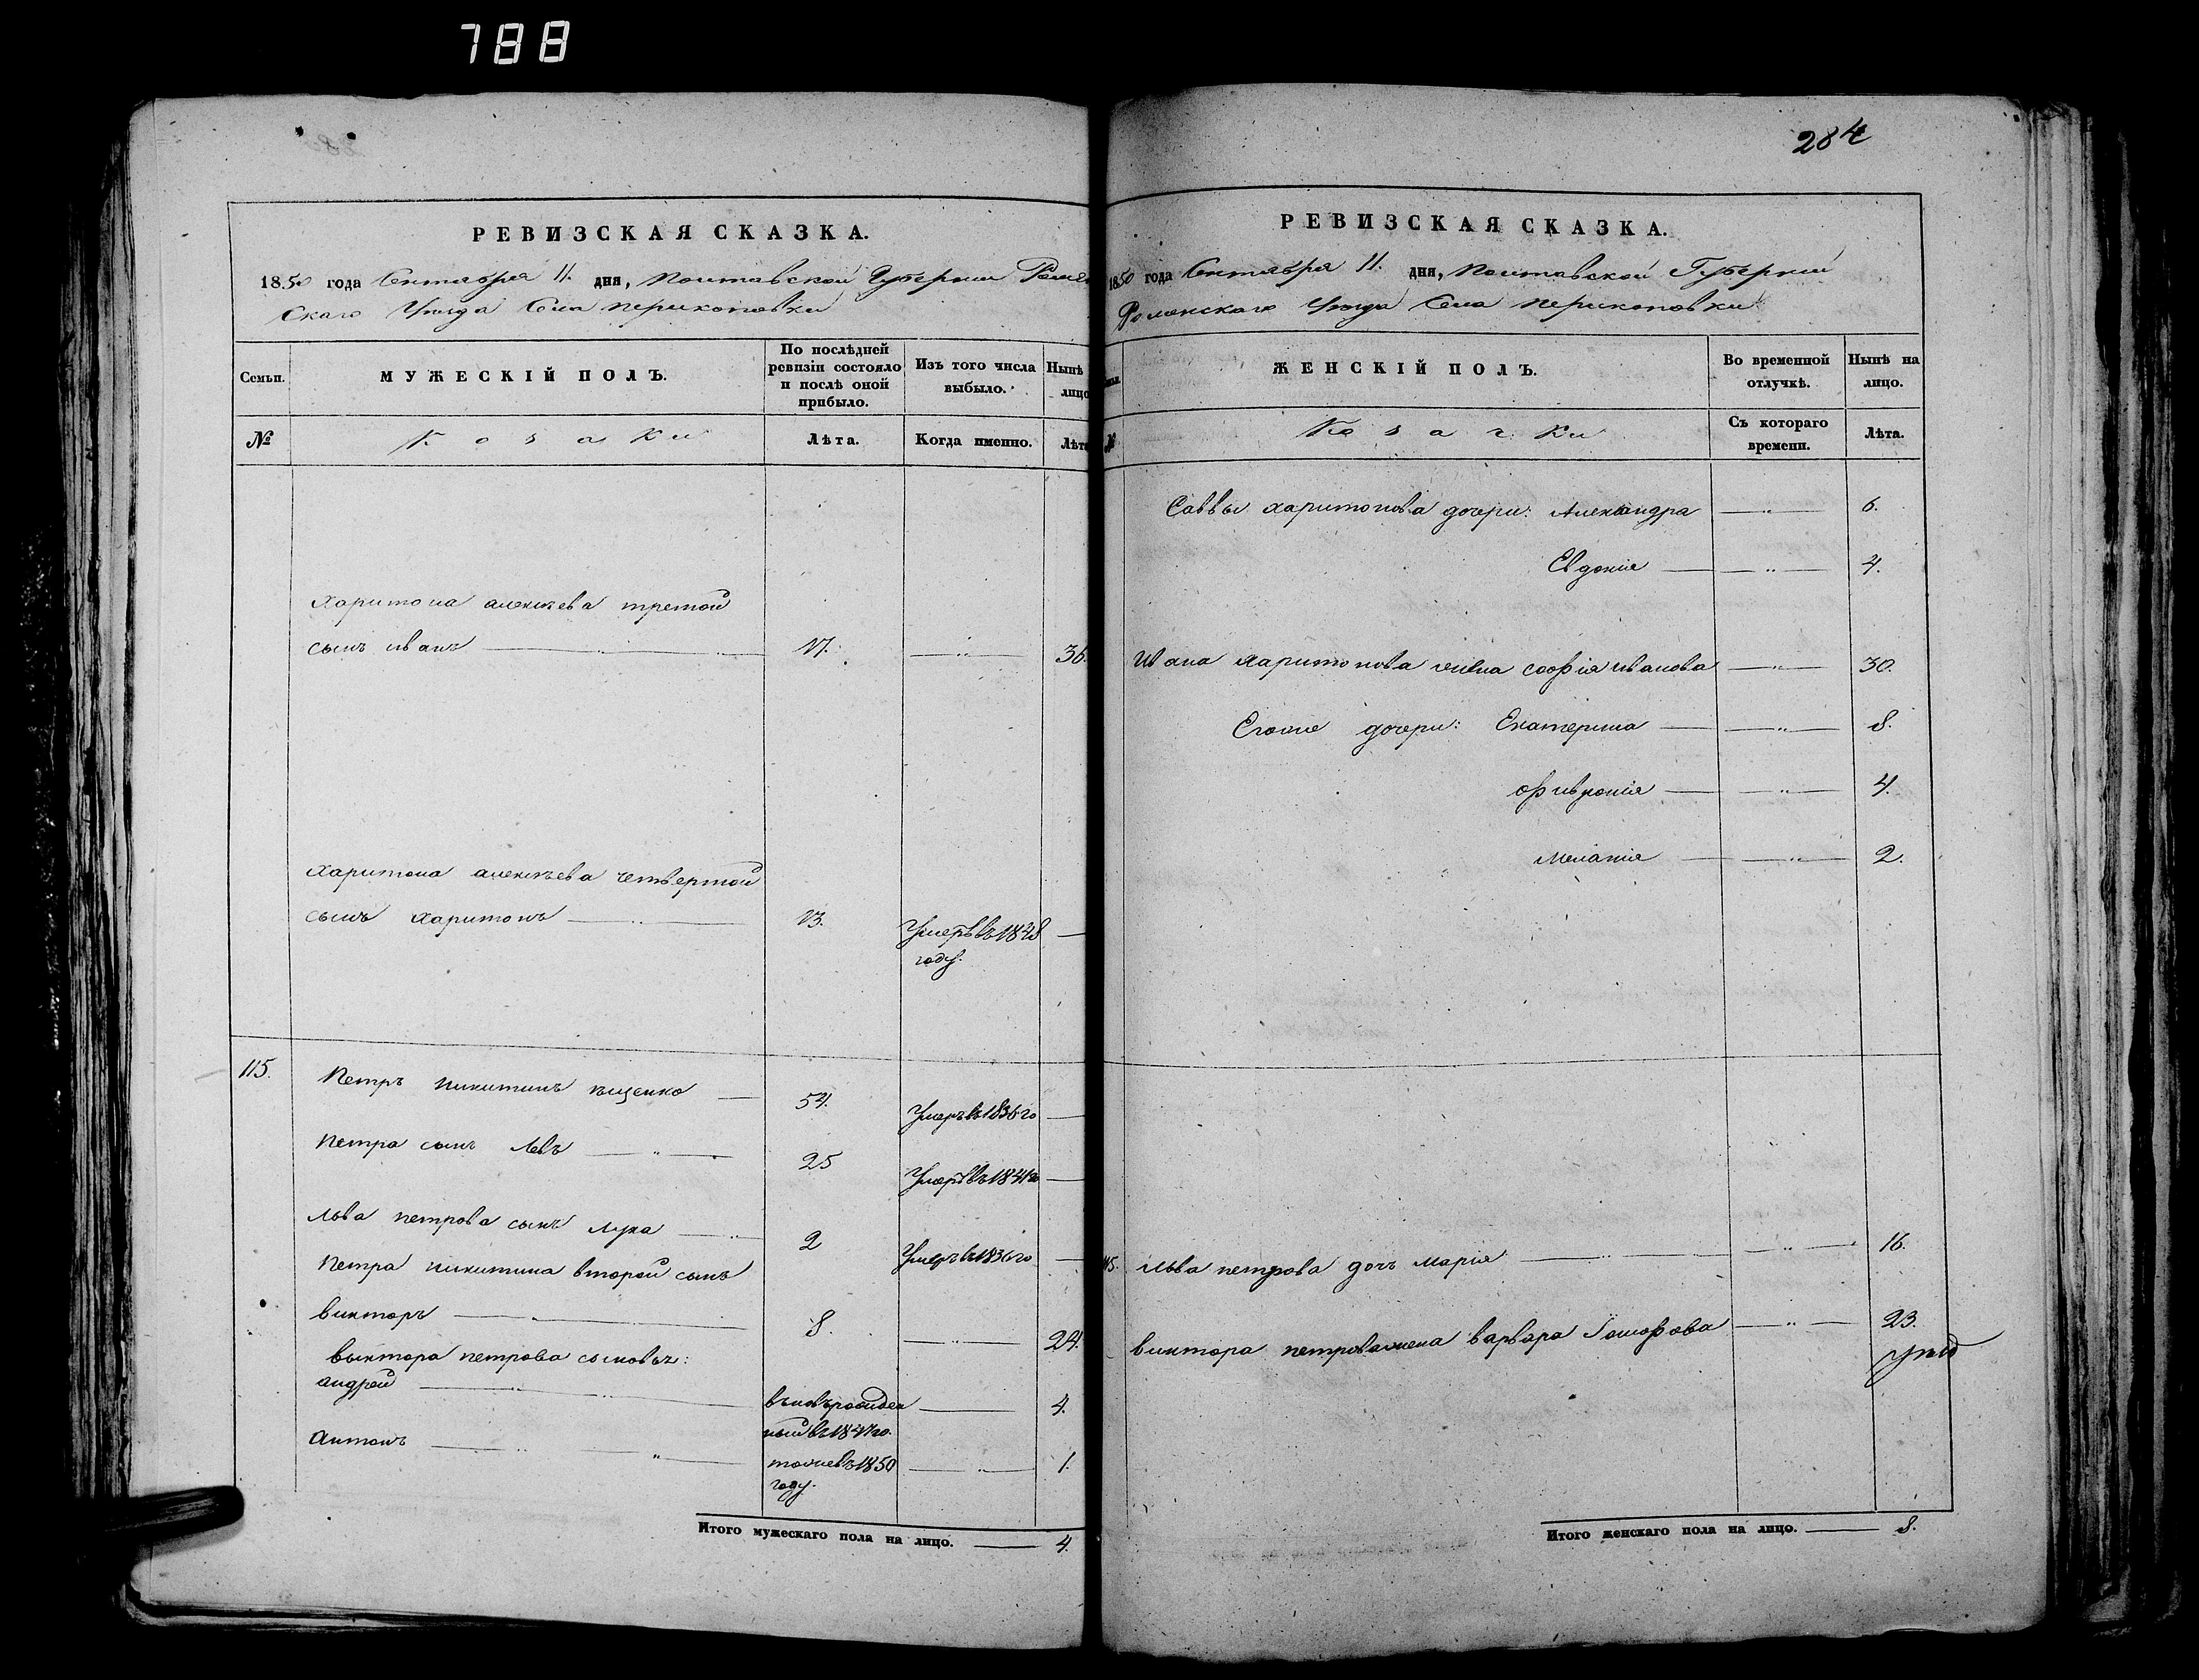 788
284
РЕВИЗСКАЯ СКАЗКА.
1850 года Сентября 11. дня, Полтавской Губернии Ромен
скаго Уезда Села перикоповки
Семьи.
МУЖЕСКІЙ ПОЛЪ.
По послѣдней
ревизіи состояло
и послѣ оной
прибыло.
Изъ того числа
выбыло.
Нынѣ
лицо
№
Козаки
Лѣта.
Когда именно.
Лѣта
харитона алексѣева третой
сынъ иванъ 17. 36.
харитона алексѣева четвертой
сынъ харитонъ 13. Умеръ въ 1848
году.
115. Петръ никитинъ 54. Умеръ въ 1836 го
петра сынъ Левъ 25 Умеръ въ 1841 го
льва петрова сынъ лука 2 Умеръ въ 1836 го
петра никитина второй сынъ
викторъ 8. 24.
виктора петрова сыновья:
андрей 4.
ный въ 1847 го.
антонъ тожъ въ 1850 1.
году.
Итого мужескаго пола на лицо. 4.
РЕВИЗСКАЯ СКАЗКА.
1850 года Сентября 11. дня, Полтавской Губернии
Роменскаго Уезда Села перикоповки
№
ЖЕНСКІЙ ПОЛЪ.
Во временной
отлучкѣ.
Нынѣ на
лицо.
Козачки
Съ котораго
времени.
Лѣта.
Саввы харитонова дочери: Александра 6.
Евдокія 4.
ивана харитонова жена софія иванова 30.
Егоже дочери: Екатерина 8.
фивронія 4.
меланія 2.
115. льва петрова дочь марія 16.
виктора петрова жена варвара 23.
Итого женскаго пола на лицо. 8.